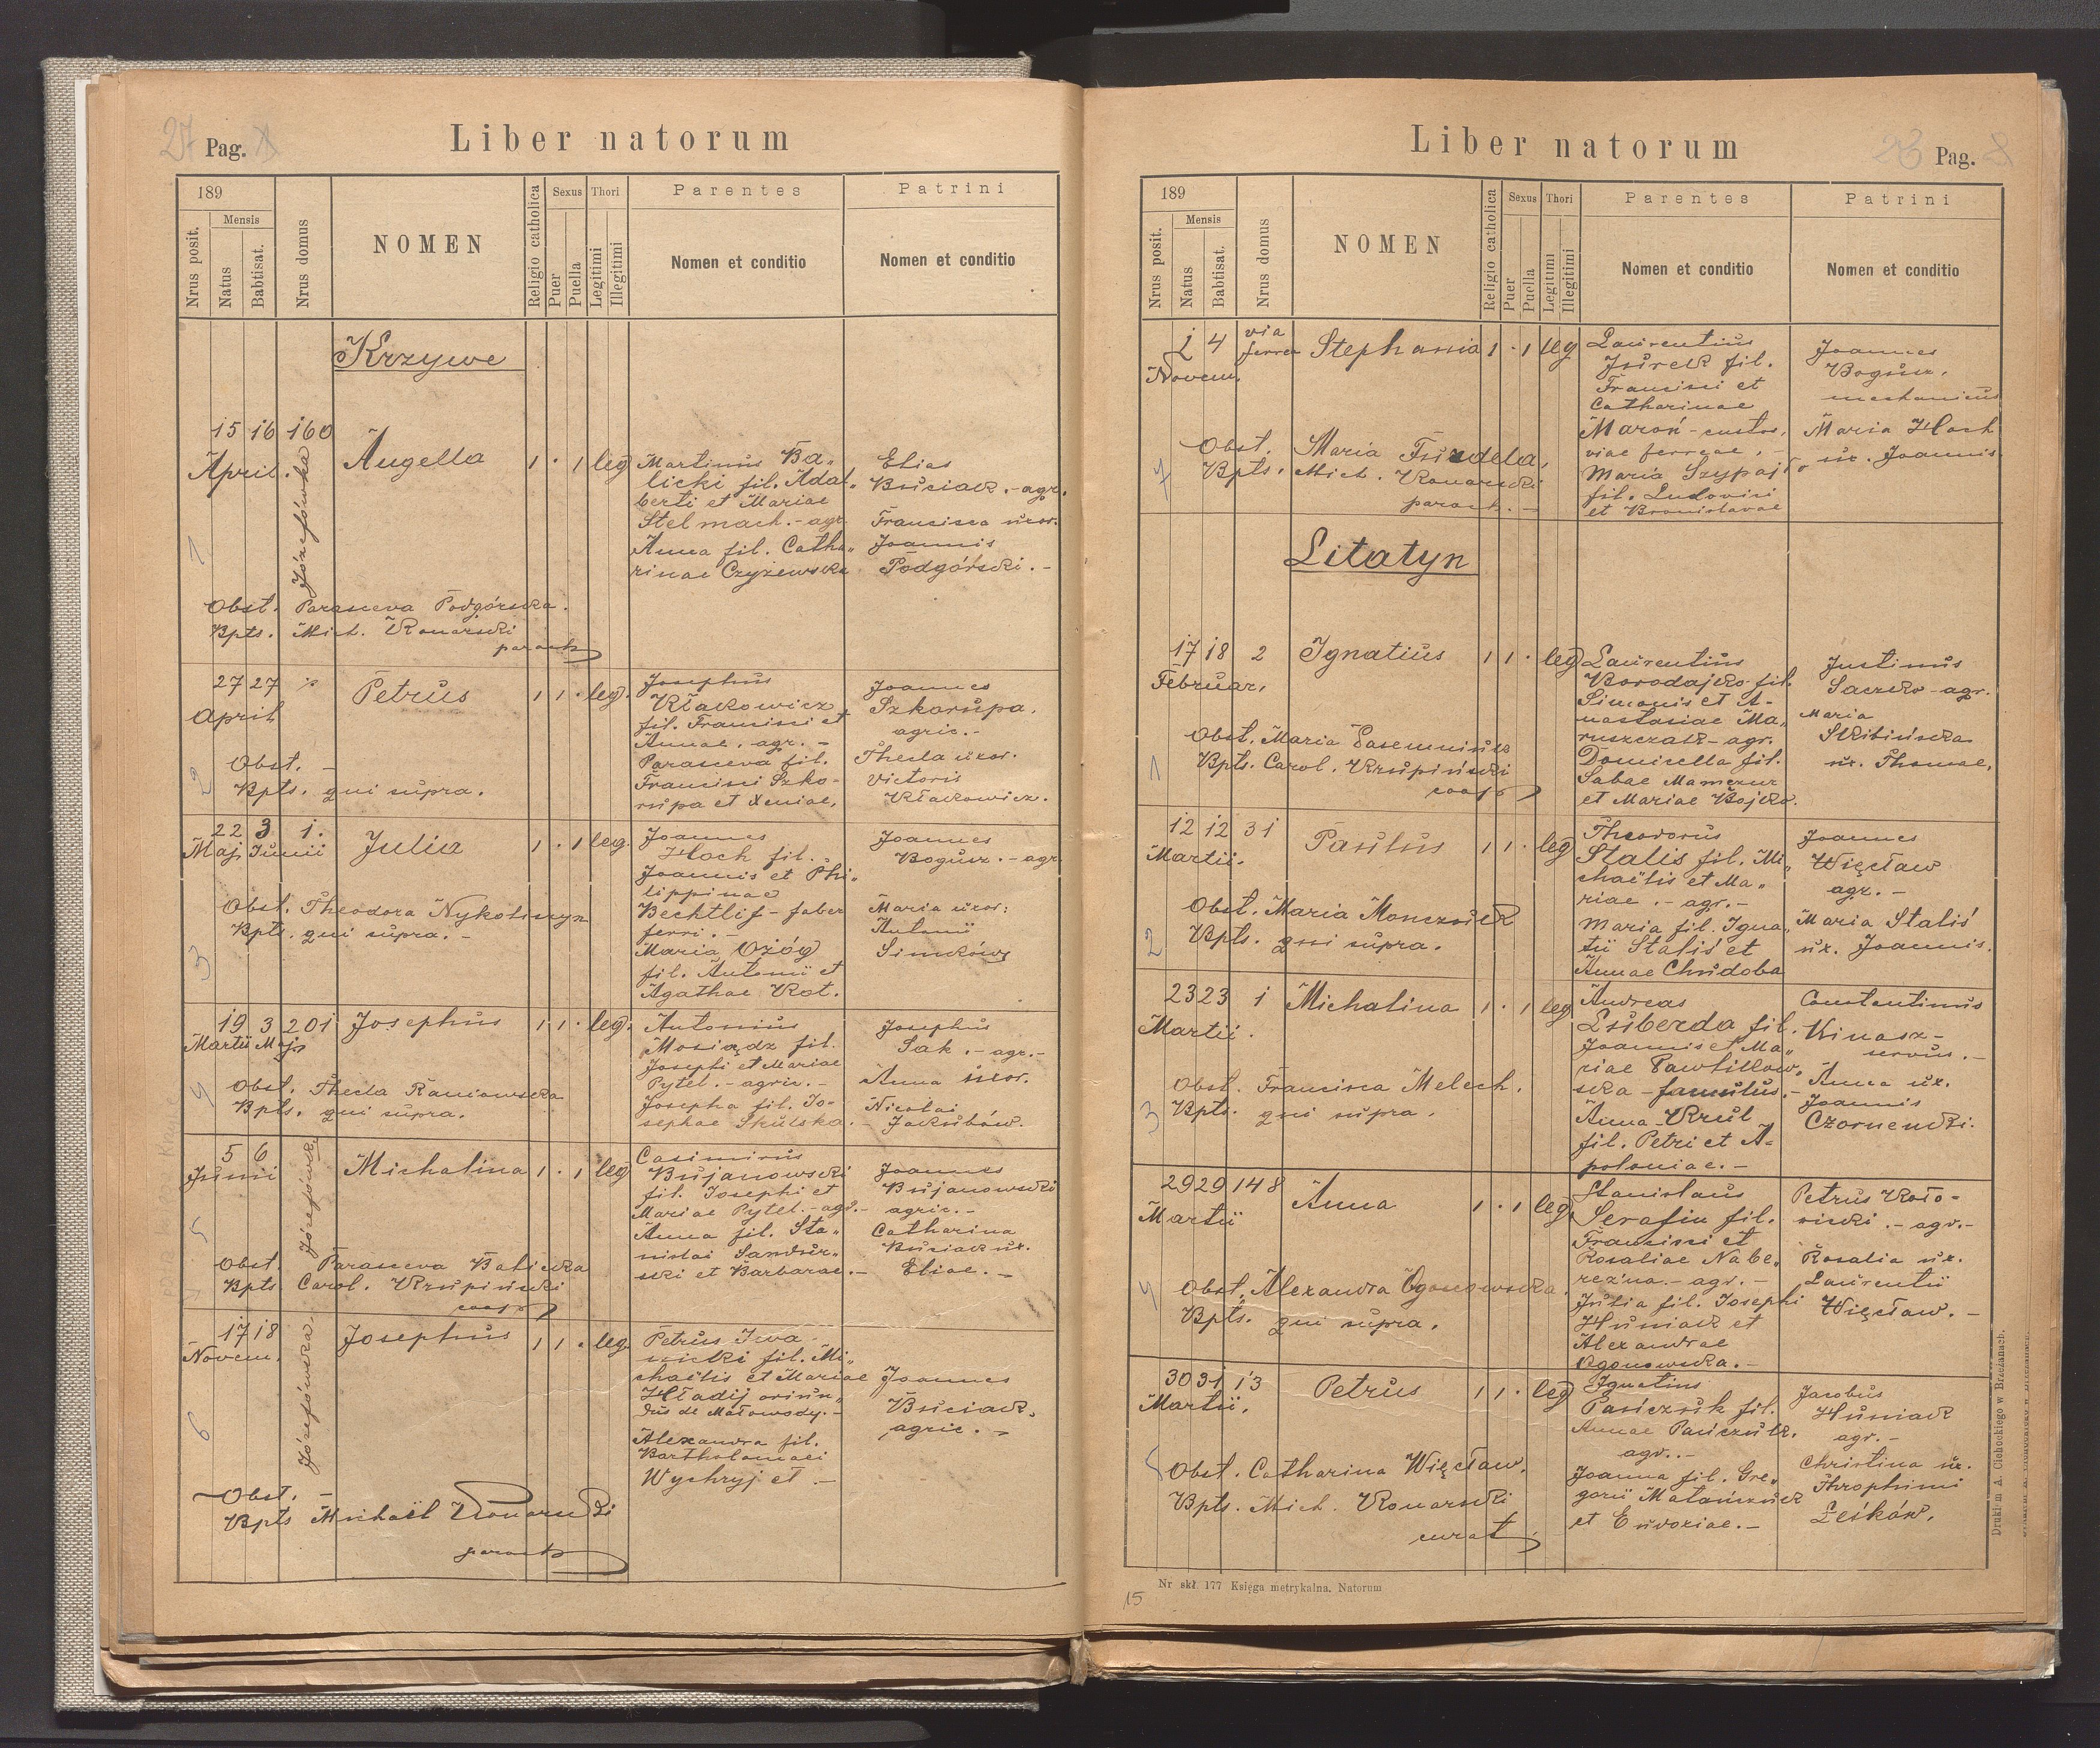 27 Pag.
Liber natorum
189
Nrus posit.
Mensis
Natus
Babtisat.
Nrus domus
NOMEN
Religio catholica
Sexus
Puer
Puella
Thori
Legitimi
Illegitimi
Parentes
Nomen et conditio
Patrini
Nomen et conditio
Krzywe
1
15 16 160
April.
Józefówka
Angella
1 · 1 leg
Martinus Ba„
licki fil. Adal„
berti et Mariae
Stelmach. - agr.
Anna fil. Catha„
rinae Czyżewska
Elias
Busiack. - agr.
Francisca uxor.
Joannis
Podgórski. -
Obst. Parasceva Podgórska.
Bpts. Mich. Konarski
paroch
2
27 27
April
Petrus
1 1 · leg.
Josephus
Kłakowicz
fil. Francisci et
Annae. agr. -
Parasceva fil.
Francisci Szko-
rupa et Xeniae.
Joannes
Szkarupa.
agric. -
Thecla uxor.
Victoris
Kłakowicz.
Obst. -
Bpts. qui supra.
3
22 3 1.
Maj. Junii
Julia
1 · 1 leg.
Joannes
Hoch fil.
Joannis et Phi„
lippinae
Bechtlif - faber
ferri. -
Maria Ożóg
fil. Antonii et
Agathae Kot.
Joannes
Bogusz. - agr
Maria uxor:
Antonii
Simków
Obst. Theodora Nykoliszyn
Bpts. qui supra. -
4
19 3 201
Martii Maji
Josephus
1 1 · leg.
Antonius
Mosiądz fil.
Josephi et Mariae
Pytel. - agric. -
Josepha fil. Jo-
sephae Skulska. -
Josephus
Sak. - agr. -
Anna uxor.
Nicolai
Jakubów.
Obst. Thecla Raniowska
Bpts. qui supra.
5
5 6
Junii
Józefówka
Michalina
1 · 1 leg
Casimirus
Bujanowski
fil. Josephi et
Mariae Pytel. - agr. -
Anna fil. Sta„
nislai Sandur„
ski et Barbarae. -
Joannes
Bujanowski
agric. -
Catharina
Busiack ux.
Eliae. -
Obst. Parasceva Balicka
Bpts. Carol. Krupiński
coop
6
17 18
Novem.
Józefówka.
Josephus
1 1 · leg.
Petrus Iwa„
nicki fil. Mi„
chaëlis et Mariae
Hładij oriun„
dus de Małowody. -
Alexandra fil.
Bartholomaei
Wychryj et -
Joannes
Busiack.
agric. -
Obst. -
Bpts Michaël Konarski
paroch
Liber natorum
28 Pag. 8
189
Nrus posit.
Mensis
Natus
Babtisat.
Nrus domus
NOMEN
Religio catholica
Sexus
Puer
Puella
Thori
Legitimi
Illegitimi
Parentes
Nomen et conditio
Patrini
Nomen et conditio
7
2 4 via ferrea
Novem.
Stephania
1 · 1 leg
Laurentius
Jurek fil.
Francisci et
Catharinae
Maroń - custos.
viae ferreae. -
Maria Szypajło
fil. Ludovici
et Bronislavae
Joannes
Bogusz,
mechanicus
Maria Hoch
ux. Joannis.
Obst. Maria Fuzdela,
Bpts. Mich. Konarski
paroch. -
Litatyn
1
17 18 2
Februar.
Ignatius
1 1 · leg
Laurentius
Borodajko fil.
Simonis et A-
nastasiae Ma„
ruszczak - agr.
Domicella fil.
Sabae Mamczur
et Mariae Bojko.
Justinus
Saczko - agr.
Maria
Skibińska
ux. Thomae.
Obst. Maria Pasemniuk
Bpts. Carol. Krupiński
coop
2
12 12 31
Martii.
Paulus
1 1 · leg
Theodorus
Stalis fil. Mi„
chaëlis et Ma„
riae. - agr. -
Maria fil. Igna„
tii Staliś et
Annae Chudoba
Joannes
Więcław
agr. -
Maria Staliś
ux. Joannis.
Obst. Maria Monczuck
Bpts. qui supra.
3
23 23 1
Martii.
Michalina
1 · 1 leg
Andreas
Luberda fil.
Joannis et Ma„
riae Pawlikow„
ska - famulus. -
Anna Krul
fil. Petri et A-
poloniae. -
Constantinus
Kinasz -
servus. -
Anna ux.
Joannis
Czornenki.
Obst. Francisca Melech.
Bpts. qui supra.
4
29 29 148
Martii
Anna
1 · 1 leg
Stanislaus
Serafin fil.
Francisci et
Rosaliae Nabe„
rezna. - agr. -
Julia fil. Josephi
Huniack et
Alexandrae
Ogonowska. -
Petrus Koło-
ziński. - agr. -
Rosalia ux.
Laurentii
Więcław. -
Obst. Alexandra Ogonowska.
Bpts. qui supra.
5
30 31 13
Martii.
Petrus
1 1 · leg
Ignatius
Pańczuk fil.
Annae Pańczuk.
agr. -
Joanna fil. Gre„
gorii Matańczuck
et Eudoxiae. -
Jacobus
Huniack
agr. -
Christina ux.
Throphimi
Leśków.
Obst. Catharina Więcław.
Bpts. Mich. Konarski
curat
Nr skł. 177 Księga metrykalna. Natorum
15
Drukiem A. Cichockiego w Brzeżanach.